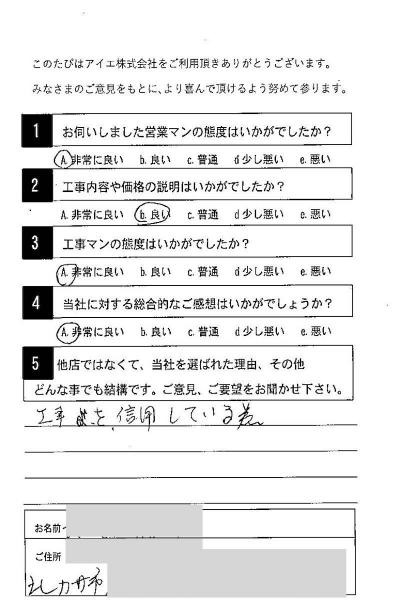 このたびはアイエ株式会社をご利用頂きありがとうございます。
みなさまのご意見をもとに、より喜んで頂けるよう努めて参ります。
1 お伺いしました営業マンの態度はいかがでしたか?
A.非常に良い b.良い c.普通 d少し悪い e.悪い
2 工事内容や価格の説明はいかがでしたか?
A.非常に良い b.良い c.普通 d少し悪い e.悪い
3 工事マンの態度はいかがでしたか?
A.非常に良い b.良い c.普通 d少し悪い e.悪い
4 当社に対する総合的なご感想はいかがでしょうか?
A.非常に良い b.良い c.普通 d少し悪い e.悪い
5 他店ではなくて、当社を選ばれた理由、その他
どんな事でも結構です。ご意見、ご要望をお聞かせ下さい。
工事 を信用している
お名前
ご住所